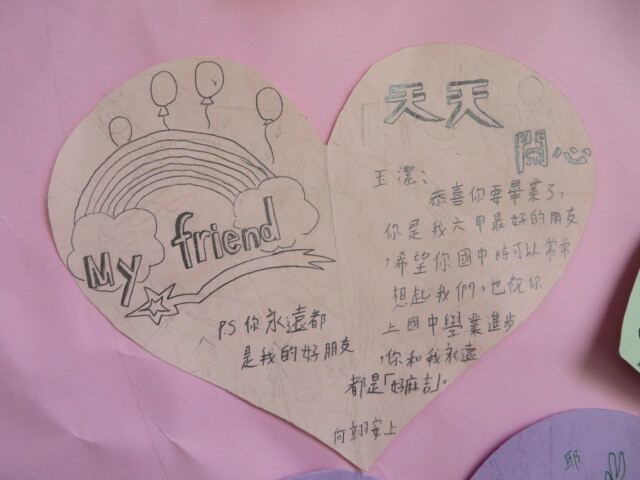 My friend
P.S 你永遠都
是我的好朋友
天天
開心
王潔:
恭喜你要畢業了,
你是我六甲最好的朋友
,希望你國中時可以常常
想起我們,也祝你
上國中學業進步
,你和我永遠
都是「好麻吉」。
何翊安上
耶